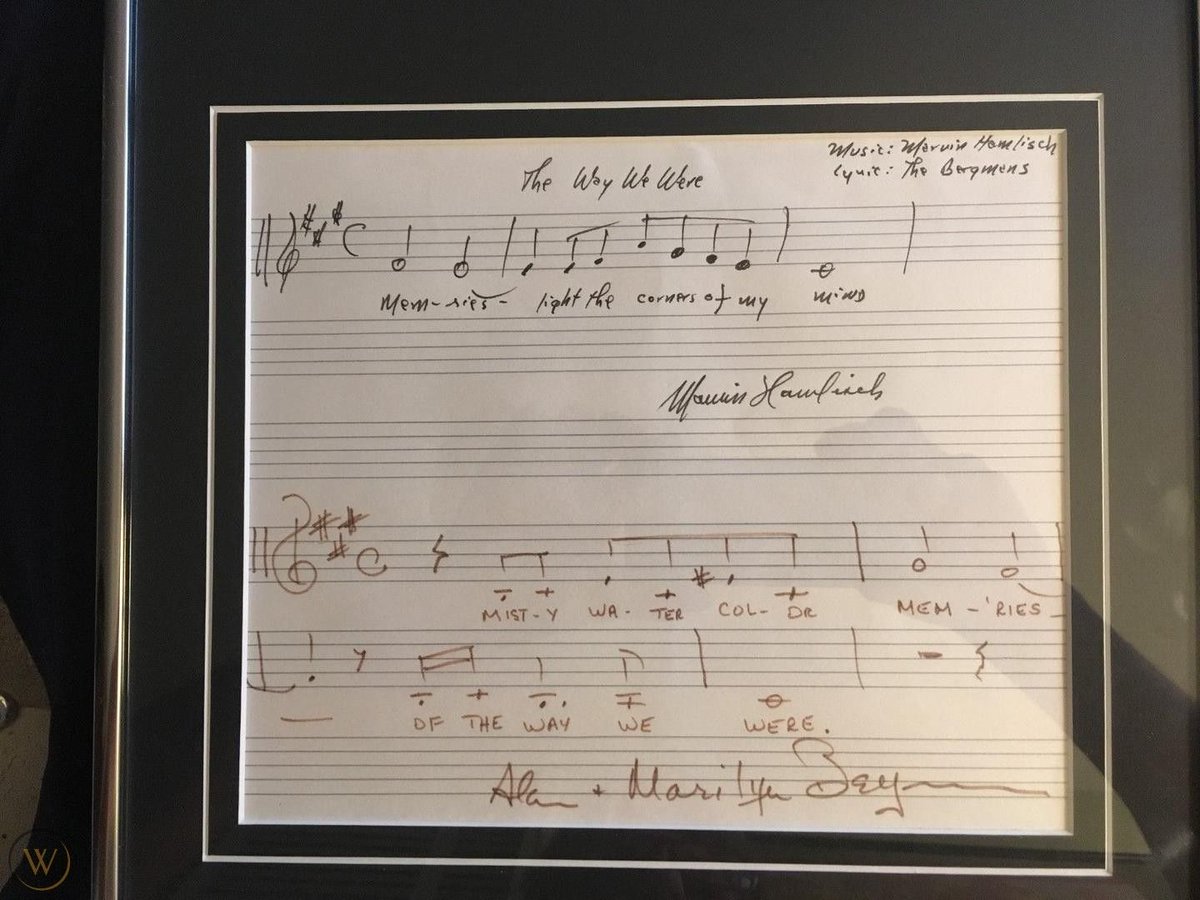 The Way We Were
Music: Marvin Hamlisch
Lyric: The Bergmans
Mem-ries- light the corners of my mind
Marvin Hamlisch
MIST-Y WA-TER COL-OR MEM-'RIES-
— OF THE WAY WE WERE.
Alan + Marilyn Bergman
W